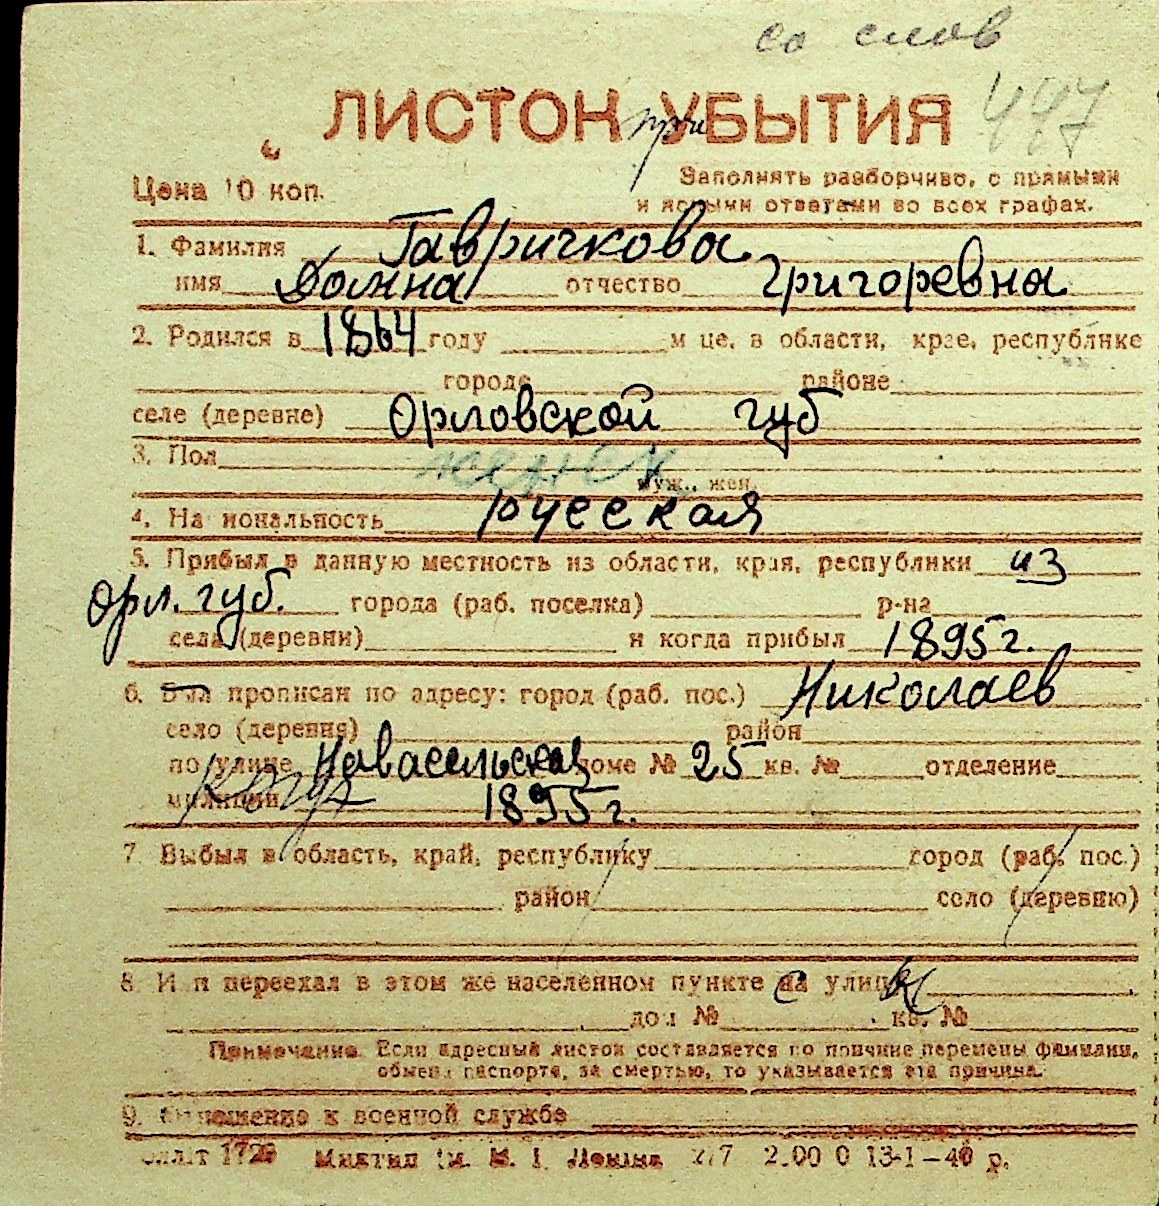 со слов
ЛИСТОК при УБЫТИЯ 497
Цена 10 коп.
Заполнять разборчиво, с прямыми
и ясными ответами во всех графах.
1. Фамилия Гавричкова
имя Домна отчество Григоревна
2. Родился в 1864 году м-це, в области, крае, республике
городе районе
селе (деревне) Орловской губ
3. Пол женск
муж., жен.
4. Национальность русская
5. Прибыл в данную местность из области, края, республики из
Орл. губ. города (раб. поселка) р-на
села (деревни) и когда прибыл 1895 г.
6. Был прописан по адресу: город (раб. пос.) Николаев
село (деревня) район
по улице Навасельская доме № 25 кв. № отделение
милиции когда 1895 г.
7. Выбыл в область, край, республику город (раб. пос.)
район село (деревню)
8. И п переехал в этом же населенном пункте с на улицы
дом № кв. №
Примечание. Если адресный листок составляется по причине перемены фамилии,
обмена паспорта, за смертью, то указывается эта причина.
9. Отношение к военной службе
1729 им. В. И. Ленина 2.00 0 13-1—40 р.